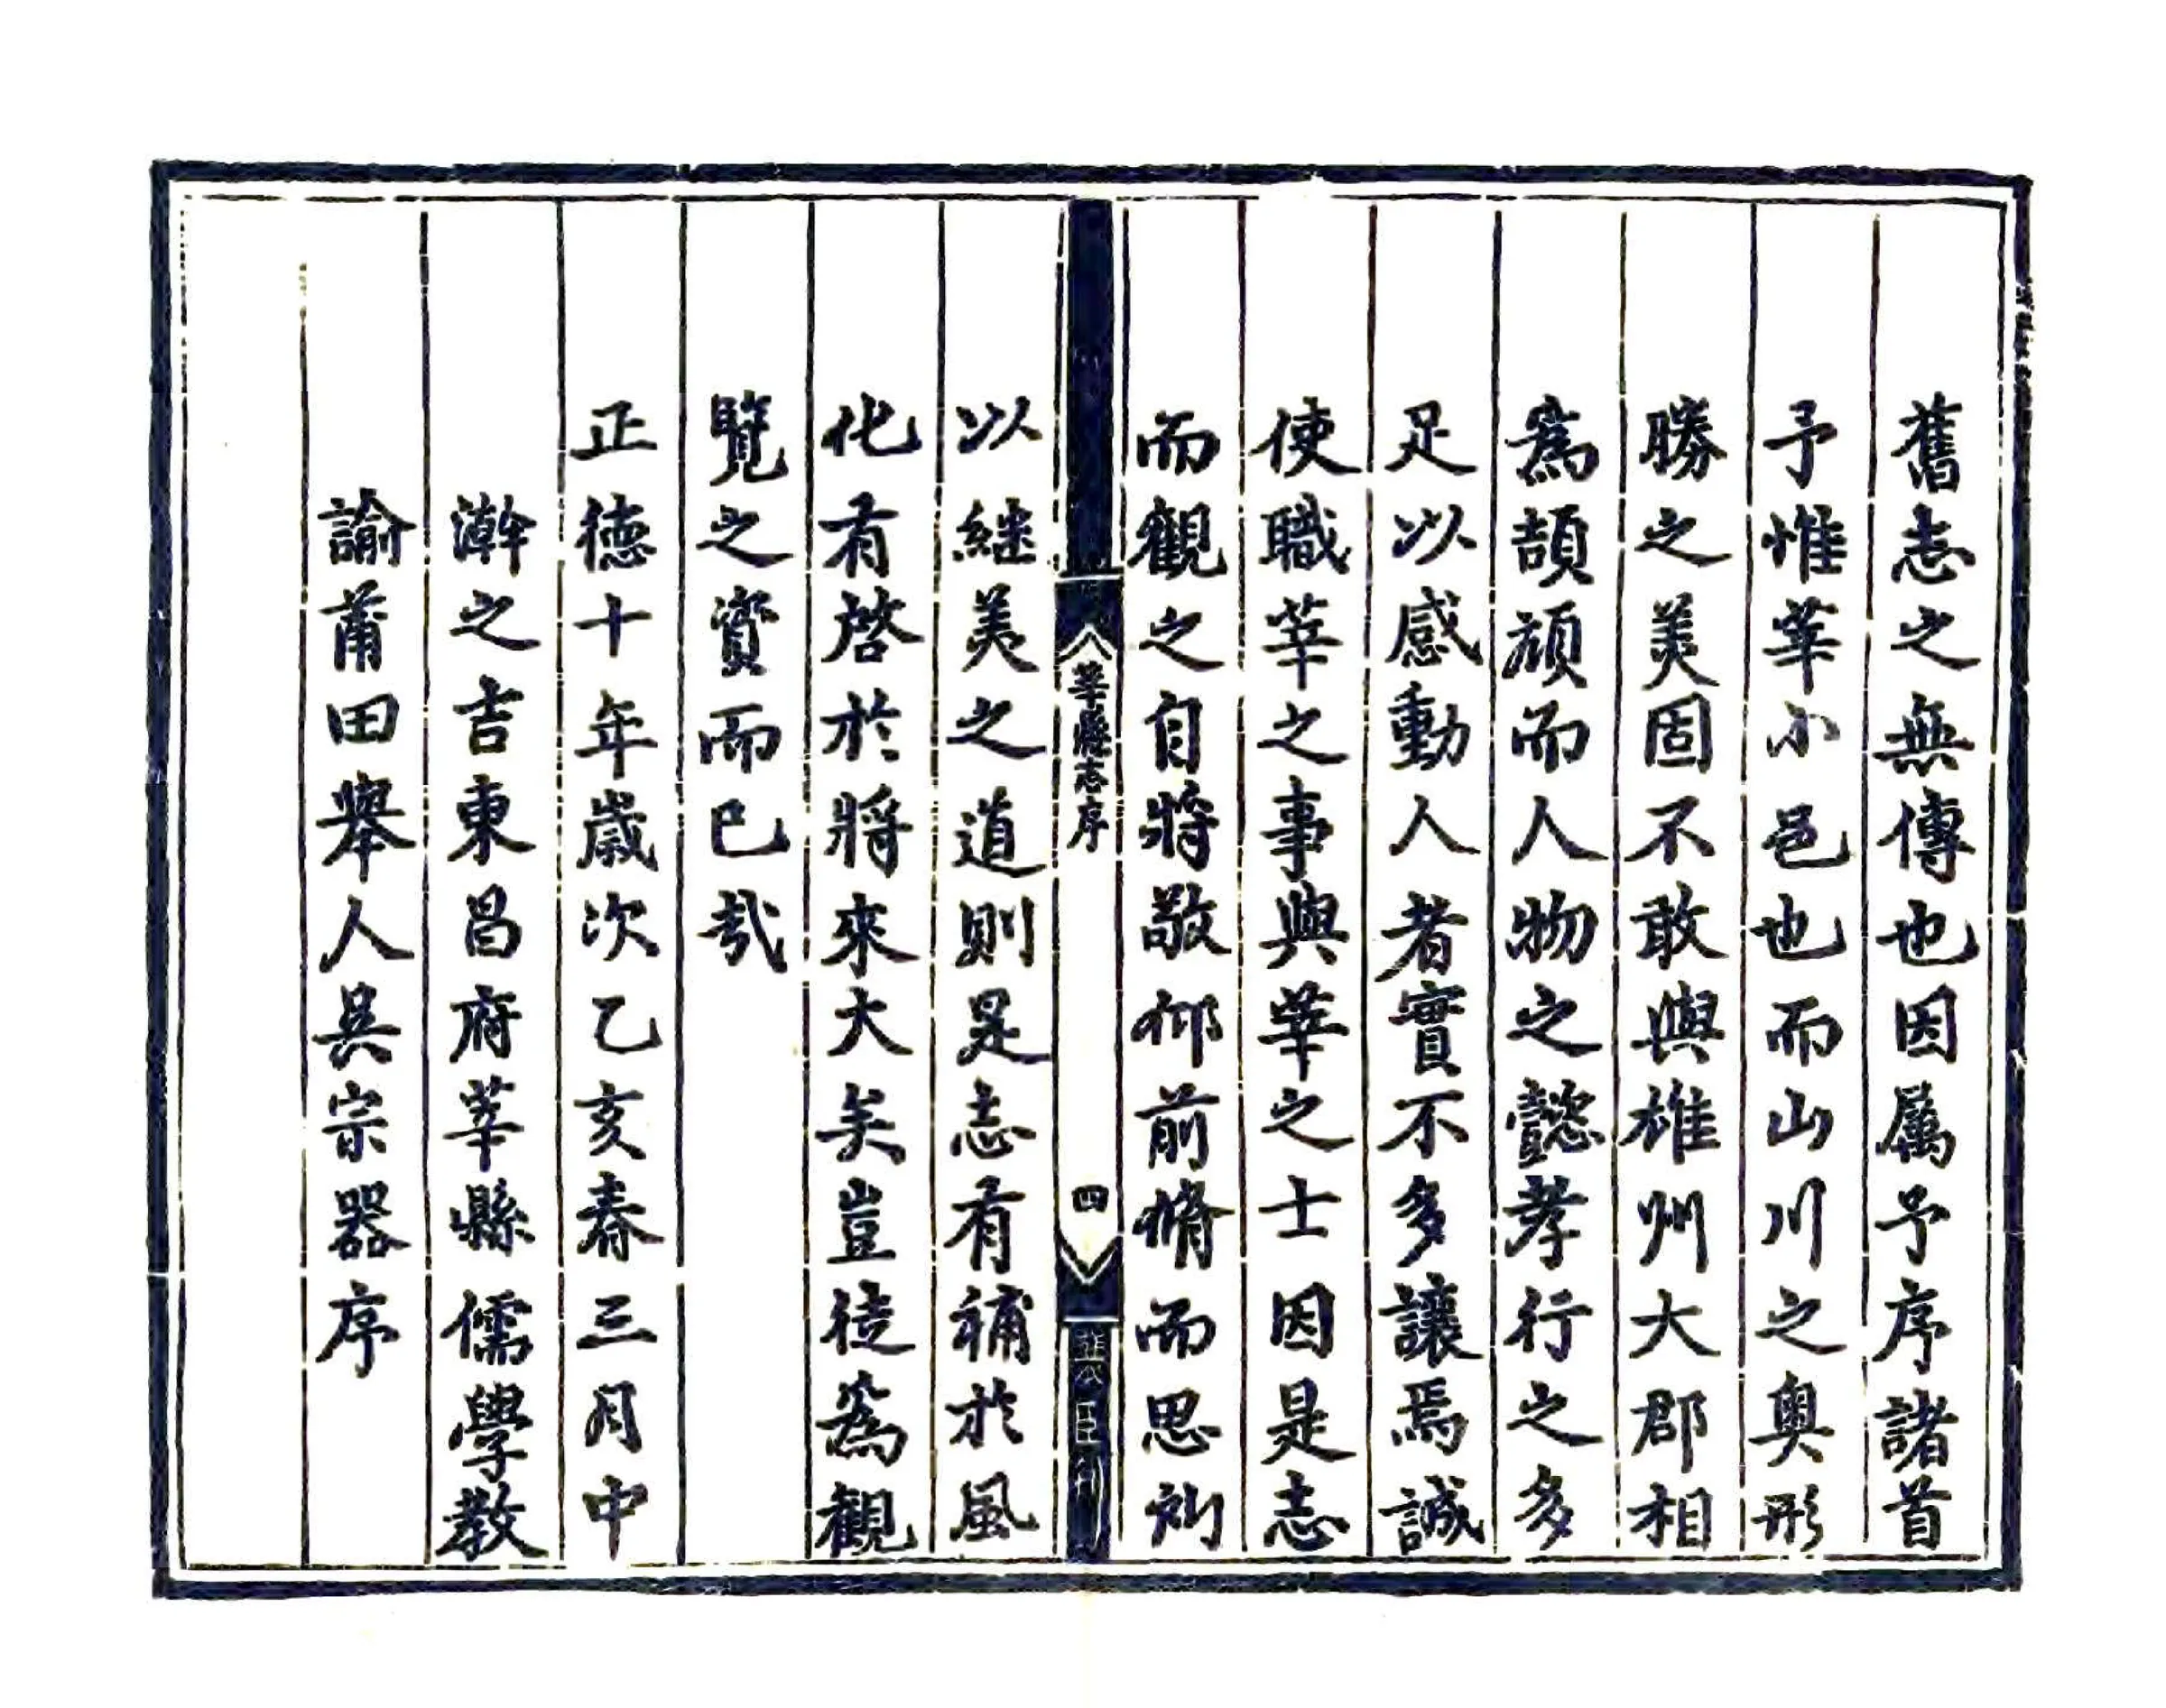 舊志之無傳也因属予序諸首
予惟莘小邑也而山川之奥形
勝之美固不敢與雄州大郡相
爲頡頏而人物之懿孝行之多
足以感動人者實不多讓焉誠
使職莘之事與莘之士因是志
而觀之自將敬仰前脩而思所
莘縣志序
四
以継美之道則是志有補於風
化有啓於將來大矣豈徒爲觀
覽之資而已哉
正德十年歲次乙亥春三月中
澣之吉東昌府莘縣儒學教
諭莆田舉人吳宗器序